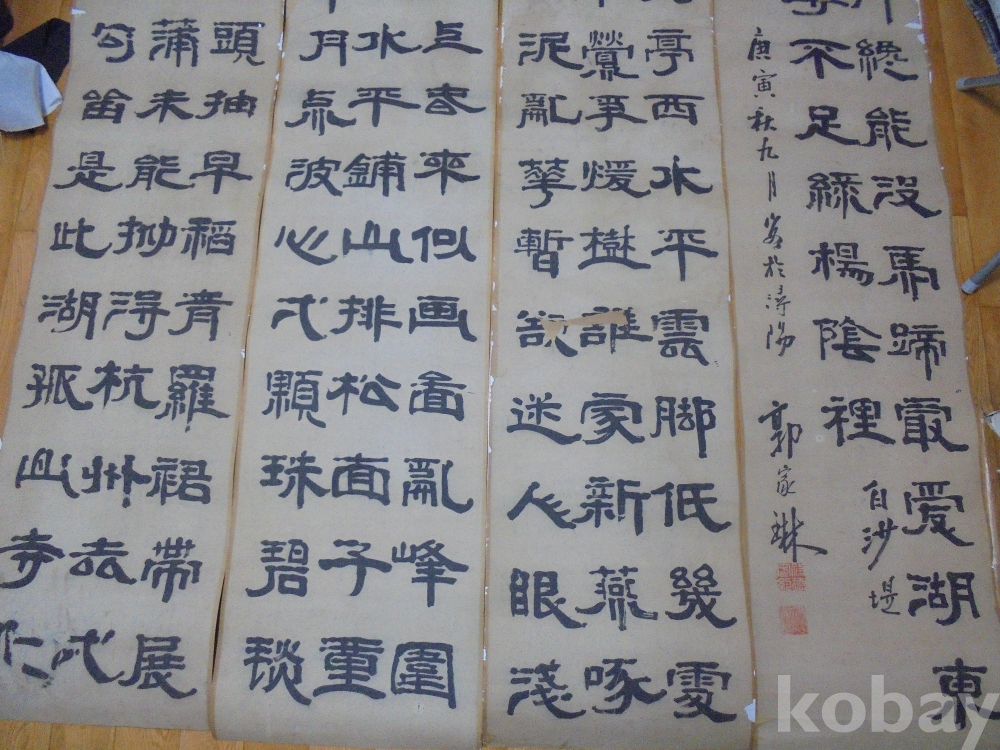 纔能沒馬蹄最爱湖東
不足綠楊陰裡
白沙堤
庚寅秋九月客於潯陽
郭家琳
亭西水平雲脚低幾處
鶯爭煖樹誰家新燕啄
泥亂華暫欲迷人眼淺
上春來似画啚亂峰圍
水平鋪山排松面千重
月点波心弌顆珠碧毯
頭抽早稻青羅裙帶展
蒲未能拗得杭州去弌
勾留是此湖孤山寺
kobay